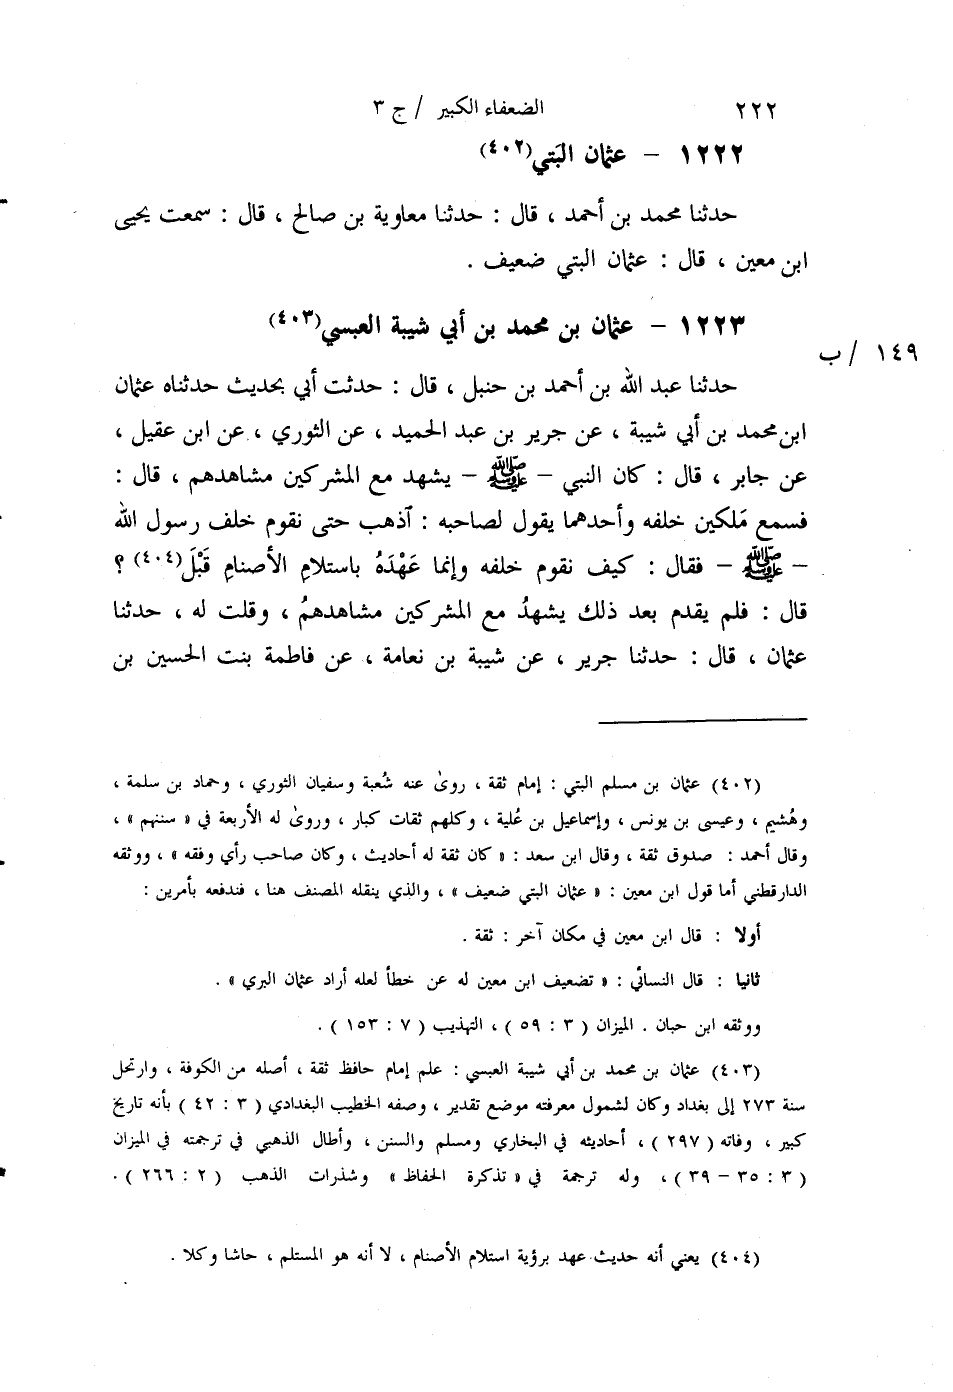 ٢٢٢ الضعفاء الكبير / ج ٣
١٢٢٢ – عثمان البَتي(٤٠٢)
حدثنا محمد بن أحمد ، قال : حدثنا معاوية بن صالح ، قال : سمعت يحيى
ابن معين ، قال : عثمان البتي ضعيف .
١٢٢٣ – عثمان بن محمد بن أبي شيبة العبسي(٤٠٣)
١٤٩ / ب
حدثنا عبد الله بن أحمد بن حنبل ، قال : حدثت أبي بحديث حدثناه عثمان
ابن محمد بن أبي شيبة ، عن جرير بن عبد الحميد ، عن الثوري ، عن ابن عقيل ،
عن جابر ، قال : كان النبي – ﷺ – يشهد مع المشركين مشاهدهم ، قال :
فسمع مَلكين خلفه وأحدهما يقول لصاحبه : آذهب حتى نقوم خلف رسول الله
– ﷺ – فقال : كيف نقوم خلفه وإنما عَهْدَهُ باستلامِ الأصنامِ قَبْلَ(٤٠٤) ؟
قال : فلم يقدم بعد ذلك يشهدُ مع المشركين مشاهدهمُ ، وقلت له ، حدثنا
عثمان ، قال : حدثنا جرير ، عن شيبة بن نعامة ، عن فاطمة بنت الحسين بن
(٤٠٢) عثمان بن مسلم البتي : إمام ثقة ، روىٰ عنه شُعبة وسفيان الثوري ، وحماد بن سلمة ،
وهُشيم ، وعيسى بن يونس ، وإسماعيل بن عُلية ، وكلهم ثقات كبار ، وروىٰ له الأربعة في « سننهم » ،
وقال أحمد : صدوق ثقة ، وقال ابن سعد : « كان ثقة له أحاديث ، وكان صاحب رأي وفقه » ، ووثقه
الدارقطني أما قول ابن معين : « عثمان البتي ضعيف » ، والذي ينقله المصنف هنا ، فندفعه بأمرين :
أولا : قال ابن معين في مكان آخر : ثقة .
ثانيا : قال النسائي : « تضعيف ابن معين له عن خطأ لعله أراد عثمان البري » .
ووثقه ابن حبان . الميزان ( ٣ : ٥٩ ) ، التهذيب ( ٧ : ١٥٣ ) .
(٤٠٣) عثمان بن محمد بن أبي شيبة العبسي : علم إمام حافظ ثقة ، أصله من الكوفة ، وارتحل
سنة ٢٧٣ إلى بغداد وكان لشمول معرفته موضع تقدير ، وصفه الخطيب البغدادي ( ٣ : ٤٢ ) بأنه تاريخ
كبير ، وفاته ( ٢٩٧ ) ، أحاديثه في البخاري ومسلم والسنن ، وأطال الذهبي في ترجمته في الميزان
( ٣ : ٣٥ – ٣٩ ) ، وله ترجمة في « تذكرة الحفاظ » وشذرات الذهب ( ٢ : ٢٦٦ ) .
(٤٠٤) يعني أنه حديث عهد برؤية استلام الأصنام ، لا أنه هو المستلم ، حاشا وكلا .